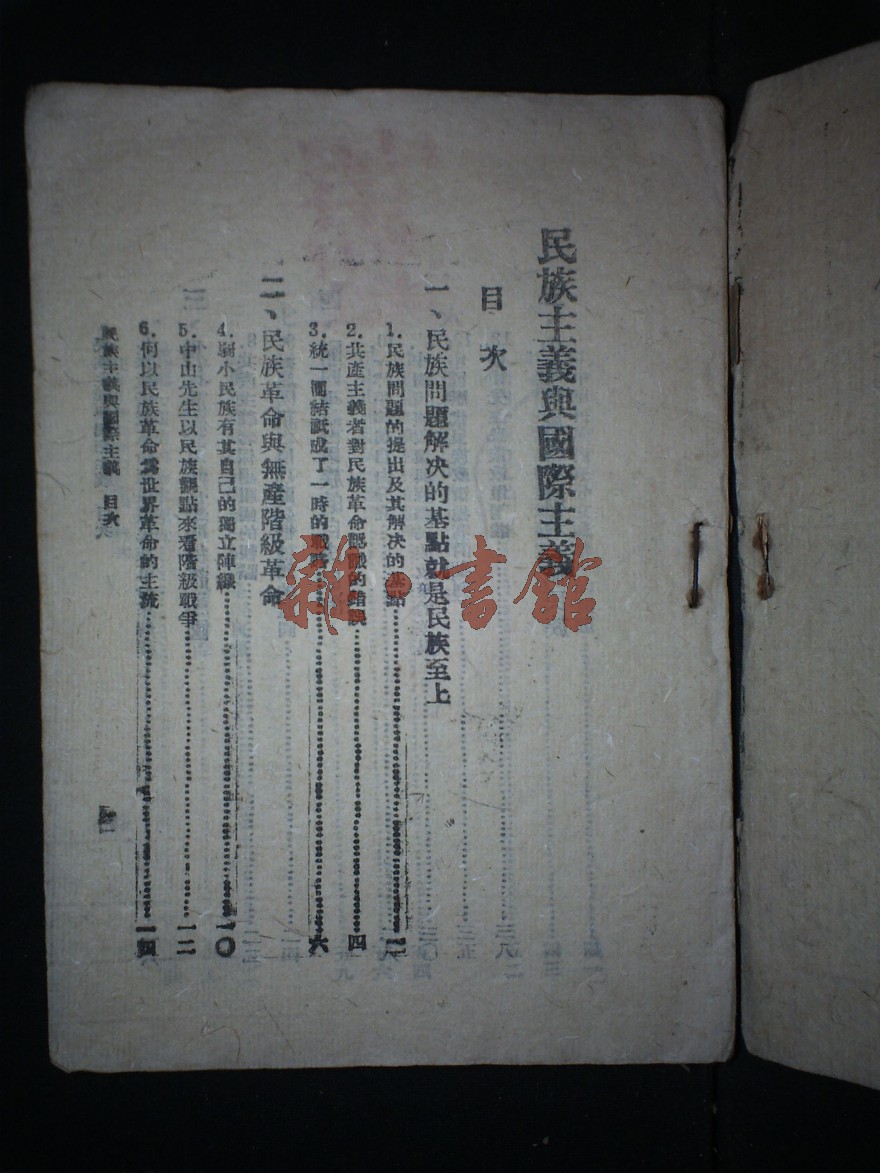 民族主義與國際主義
目次
一、民族問題解決的基點就是民族至上
1.民族問題的提出及其解决的基點
2.共產主義者對民族革命認識的錯誤 四
3.統一團結祇成了一時的戰略 六
二、民族革命與無產階級革命
4.弱小民族有其自己的獨立陣線 一〇
5.中山先生以民族觀點來看階級戰爭 一二
6.何以民族革命爲世界革命的主流 一四
民族主義與國際主義 目次
雜·書館